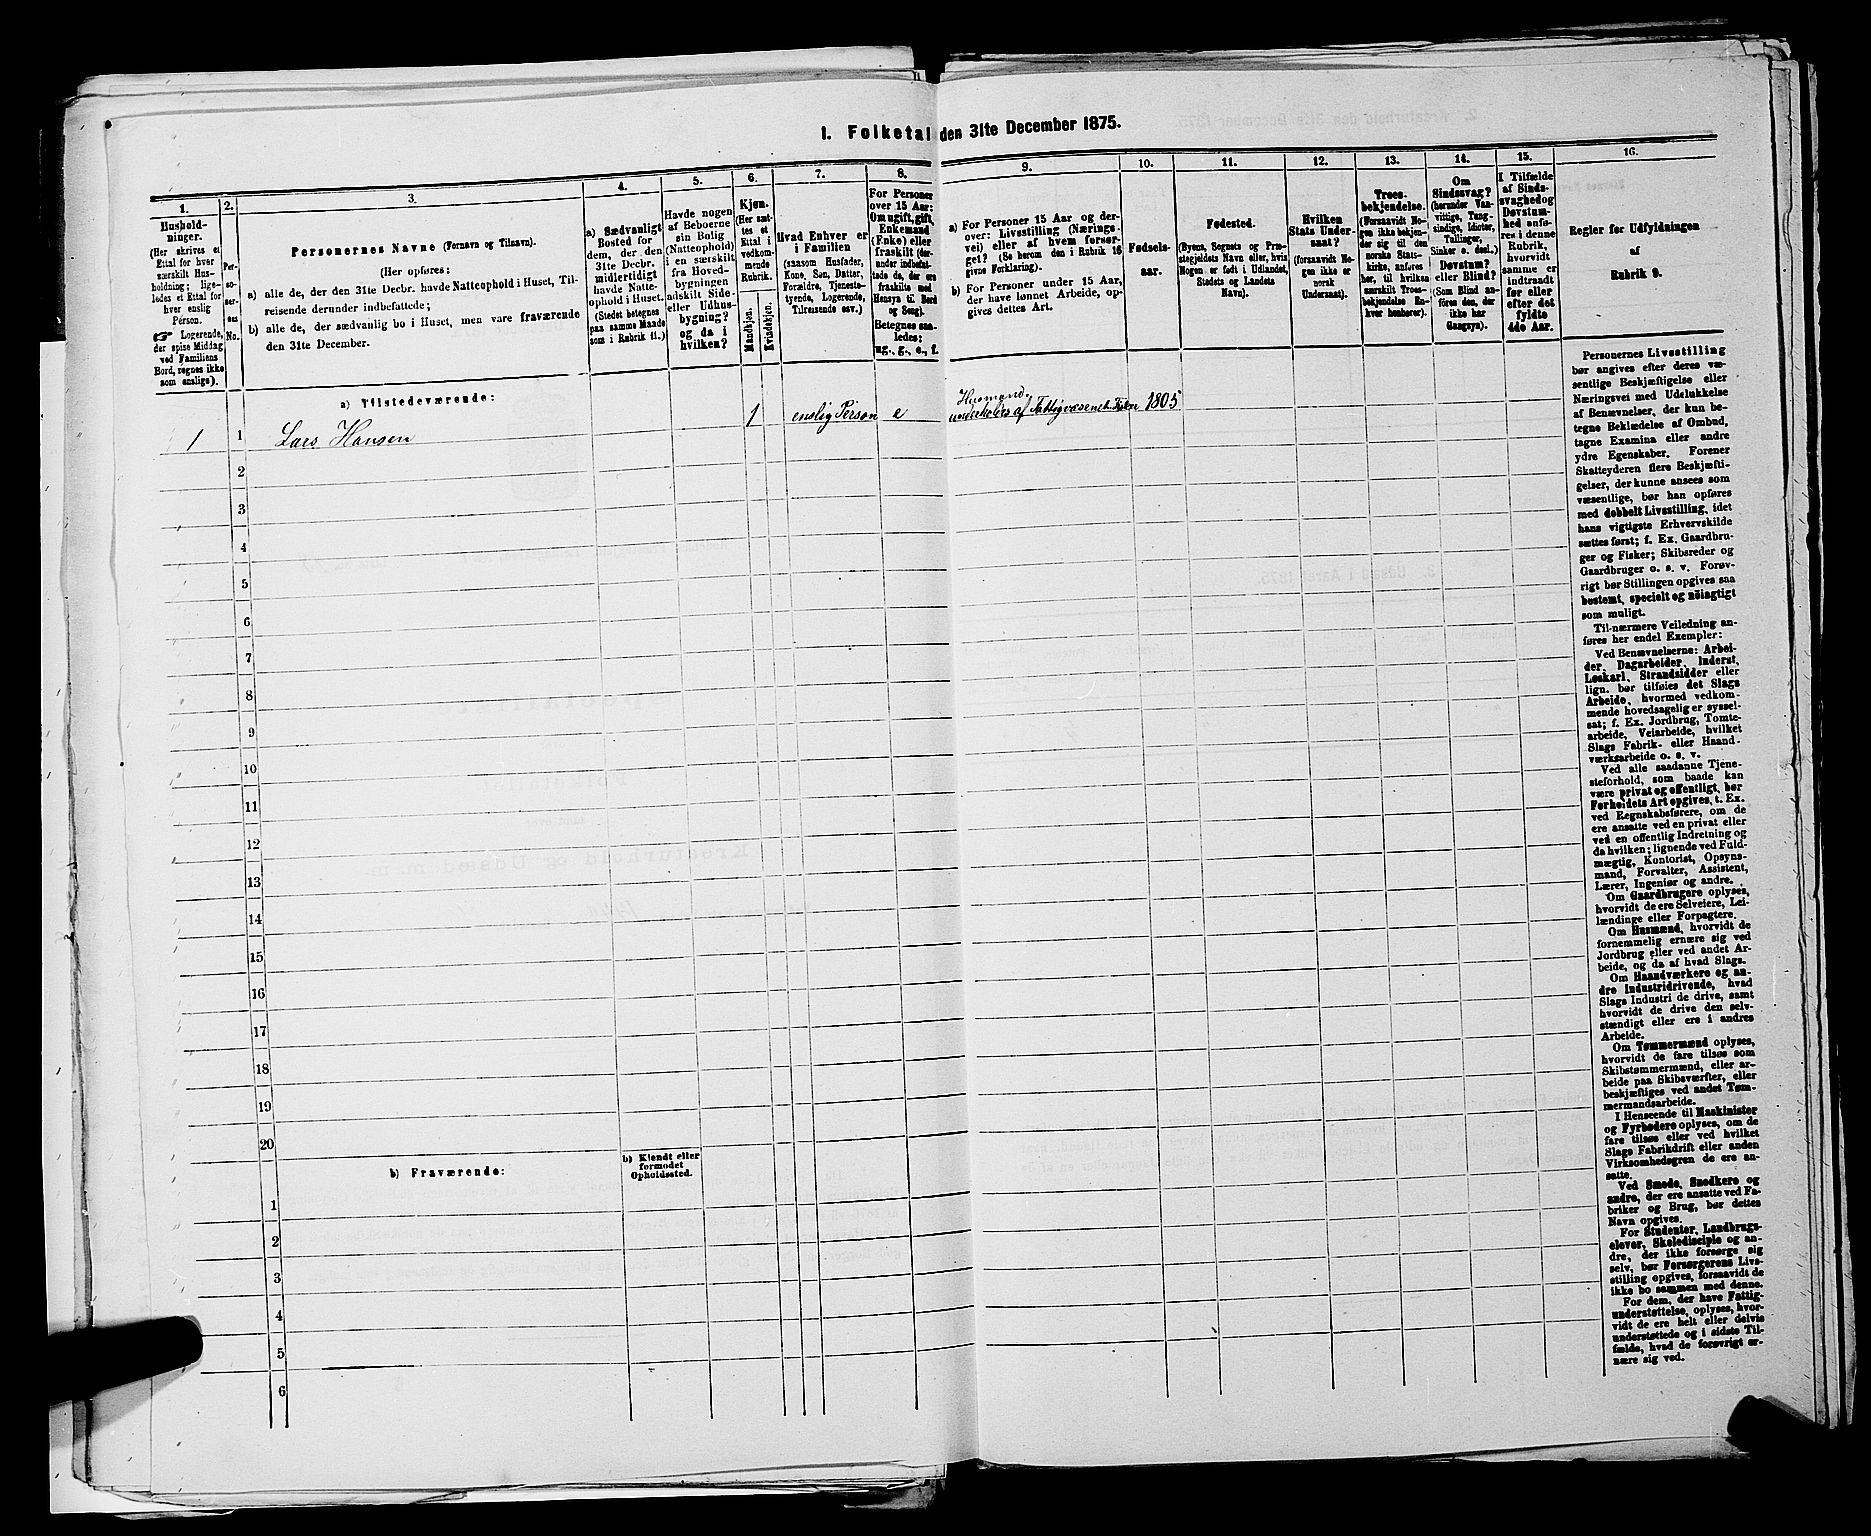 1. Folketal den 31te December 1875.
1.
2.
3.
4.
5.
6.
7.
8.
9.
10.
11.
12.
13.
14.
15.
16.
Hushold-
ninger.
(Her skrives et
Ettal for hver
særskilt Hus-
holdning; lige-
ledes et Ettal for
hver enslig
Person.
☞ Logerende,
der spise Middag
ved Familiens
Bord, regnes ikke
som enslige).
Per-
so-
ner-
nes
No.
Personernes Navne (Fornavn og Tilnavn).
(Her opføres:
a) alle de, der den 31te Decbr. havde Natteophold i Huset, Til-
reisende derunder indbefattede;
b) alle de, der sædvanlig bo i Huset, men vare fraværende
den 31te December.
a) Sædvanligt
Bosted for
dem, der den
31te Decbr.
midlertidigt
havde Natte-
ophold i Huset.
(Stedet betegnes
paa samme Maade
som i Rubrik 11.)
Havde nogen
af Beboerne
sin Bolig
(Natteophold)
i en særskilt
fra Hoved-
bygningen
adskilt Side-
eller Udhus-
bygning?
og da i
hvilken?
Kjøn.
(Her sæt-
tes et
Ettal i
vedkom-
mende
Rubrik.
Mandkjøn.
Kvindekjøn.
Hvad Enhver er
i Familien
(saasom Husfader,
Kone, Søn, Datter,
Forældre, Tjeneste-
tyende, Logerende,
Tilreisende osv.)
For Personer
over 15 Aar:
Om ugift, gift,
Enkemand
(Enke) eller
fraskilt (der-
under indbefat-
tede de, der ere
fraskilte med
Hensyn til Bord
og Seng).
Betegnes saa-
ledes:
ug., g., e., f.
a) For Personer 15 Aar og der-
over: Livsstilling (Nærings-
vei) eller af hvem forsør-
get? (Se herom den i Rubrik 16
givne Forklaring).
b) For Personer under 15 Aar,
der have lønnet Arbeide, op-
gives dettes Art.
Fødsels-
aar.
Fødested.
(Byens, Sognets og Præ-
stegjeldets Navn eller, hvis
Nogen er født i Udlandet,
Stedets og Landets
Navn).
Hvilken
Stats Under-
saat?
(forsaavidt No-
gen ikke er
norsk
Undersaat).
Troes-
bekjendelse.
(Forsaavidt No-
gen ikke bekjen-
der sig til den
norske Stats-
kirke, anføres
her, til hvilken
særskilt Troes-
bekjendelse En-
hver henhører).
Om
Sindssvag?
(herunder Van-
vittige, Tung-
sindige, Idioter,
Tullinger,
Sinker o. desl.).
Døvstum?
eller Blind?
(Som Blind an-
føres den, der
ikke har
Gangsyn).
I Tilfælde
af Sinds-
svaghed og
Døvstum-
hed anfø-
res i denne
Rubrik,
hvorvidt
samme er
indtraadt
før eller
efter det
fyldte
4de Aar.
Regler for Udfyldningen
af
Rubrik 9.
a) Tilstedeværende:
1 1 Lars Hansen 1 enslig Person e Husmand,
underholdes af Fattigvæsenet 1805
2
3
4
5
6
7
8
9
10
11
12
13
14
15
16
17
18
19
20
b) Fraværende:
b) Kjendt eller
formodet
Opholdssted.
1
2
3
4
5
6
Personernes Livsstilling
bør angives efter deres væ-
sentlige Beskjæftigelse eller
Næringsvei med Udelukkelse
af Benævnelser, der kun be-
tegne Beklædelse af Ombud,
tagne Examina eller andre
ydre Egenskaber. Forener
Skatteyderen flere Beskjæfti-
gelser, der kunne ansees som
væsentlige, bør han opføres
med dobbelt Livsstilling, idet
hans vigtigste Erhvervskilde
sættes først; f. Ex. Gaardbru-
ger og Fisker; Skibsreder og
Gaardbruger o. s. v. Forøv-
rigt bør Stillingen opgives saa
bestemt, specielt og nöiagtigt
som muligt.
Til nærmere Veiledning an-
føres her endel Exempler:
Ved Benævnelserne: Arbei-
der, Dagarbeider, Inderst,
Løskarl, Strandsidder eller
lign. bør tilføies det Slags
Arbeide, hvormed vedkom-
mende hovedsagelig er syssel-
sat; f. Ex. Jordbrug, Tomte-
arbeide, Veiarbeide, hvilket
Slags Fabrik- eller Haand-
værksarbeide o. s. v.
Ved alle saadanne Tjene-
steforhold, som baade kan
være privat og offentligt, bør
Forholdets Art opgives, f. Ex.
ved Regnskabsførere, om de
ere ansatte ved en privat eller
ved en offentlig Indretning og
da hvilken; lignende ved Fuld-
mægtig, Kontorist, Opsyns-
mand, Forvalter, Assistent,
Lærer, Ingeniør og andre.
Om Gaardbrugere oplyses,
hvorvidt de ere Selveiere, Lei-
lændinge eller Forpagtere.
Om Husmænd, hvorvidt de
fornemmelig ernære sig ved
Jordbrug eller ved andet Ar-
beide, og da af hvad Slags.
Om Haandværkere og an-
dre Industridrivende, hvad
Slags Industri de drive, samt
hvorvidt de drive den selv-
stændigt eller ere i andres
Arbeide.
Om Tømmermænd oplyses,
hvorvidt de fare tilsøs som
Skibstømmermænd, eller ar-
beide paa Skibsværfter, eller
beskjæftiges ved andet Tøm-
mermandsarbeide.
I Henseende til Maskinister
og Fyrbødere oplyses, om de
fare tilsøs eller ved hvilket
Slags Fabrikdrift eller anden
Virksomhedsgren de ere an-
satte.
Ved Smede, Snedkere og
andre, der ere ansatte ved Fa-
briker og Brug, bør dettes
Navn opgives.
For Studenter, Landbrugs-
elever, Skoledisciple og an-
dre, der ikke forsørge sig
selv, bør Forsørgerens Livs-
stilling opgives, forsaavidt de
ikke bo sammen med denne.
For dem, der have Fattig-
understøttelse, oplyses, hvor-
vidt de ere helt eller delvis
understøttede og i sidste Til-
fælde, hvad de forøvrigt er-
nære sig ved.